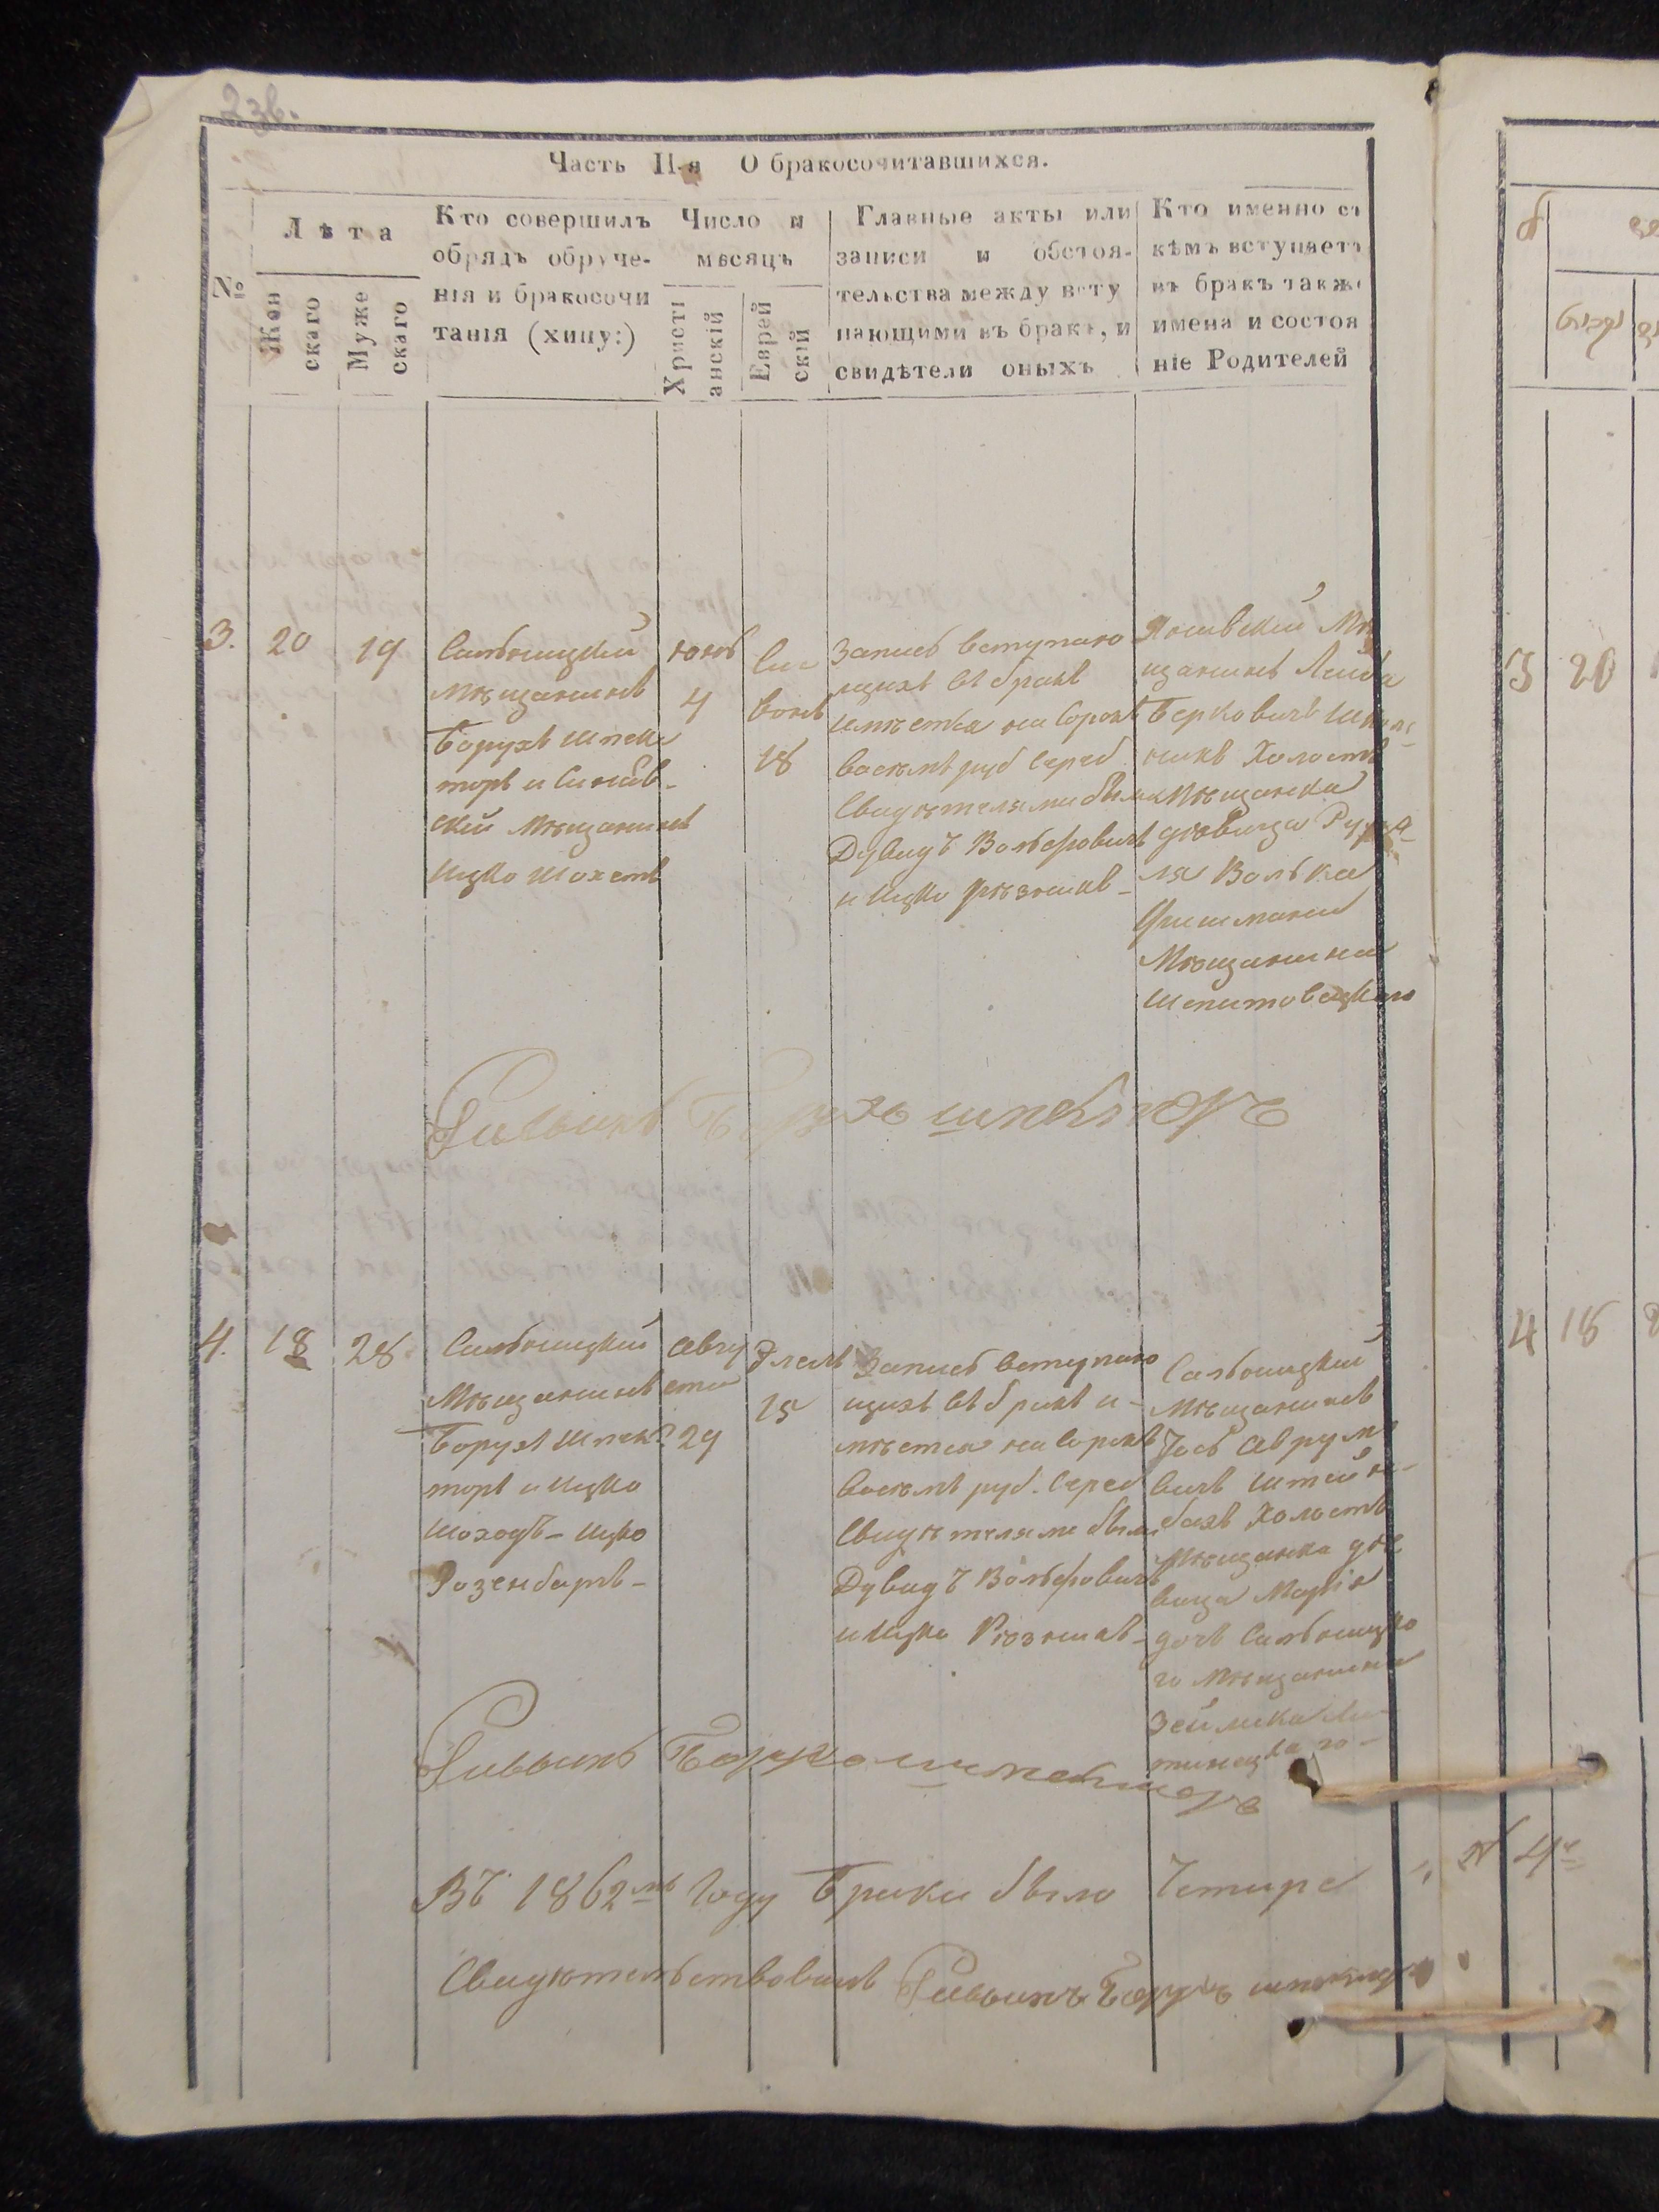 23б.
Часть II-я О бракосочитавшихся.
№
Лѣта
Жен
скаго
Муже
скаго
Кто совершилъ
обрядъ обруче-
нія и бракосочи
танія (хипу:)
Число и
мѣсяцъ
Христі
анскій
Еврей
скій
Главные акты или
записи и обстоя-
тельства между всту
пающими въ бракъ, и
свидѣтели оныхъ
Кто именно съ
кѣмъ вступаетъ
въ бракъ также
имена и состоя
ніе Родителей
3.
20
19
мѣщанинъ
Борухъ Шпек
торъ и
ской Мѣщанинъ
Ицко Шохетъ
Юнь
4
Си
вонъ
18
Запись вступаю
щихъ въ бракъ
имѣетса на Сорокъ
восемь руб Сереб
Свидѣтелями были
Дувидъ Вольфовичъ
и Ицко Рѣзникъ-
Мѣ
щанинъ Лейба
Берковичъ
Холостъ
Мѣщанка
дѣвица
ля Волька
Фишмана
Мѣщанина
Шепитовецкаго
Раввинъ Борухъ Шпекторъ
4.
18
28
Мѣщанинъ
Борухъ Шпек
торъ и Ицко
Шоходъ- Ицко
Розенбаръ-
Авгу
ста
29
Элелъ
15
Запись вступаю
щихъ въ бракъ и-
мѣетса на Сорокъ
восемь руб. Сереб
Свидѣтелями были
Дувидъ Вольфовичъ
и Ицко Рѣзникъ-
Мѣщанинъ
Іось Аврумо
вичъ Штейн-
бахъ Холостъ
Мѣщанка дѣ
вица
дочь
го Мѣщанина
Раввинъ Борухъ Шпекторъ
Въ 1862мъ Году Браки было Четире
№ 4й
Свидѣтельствовалъ Раввинъ Борухъ Шпекторъ
3
20
4
18